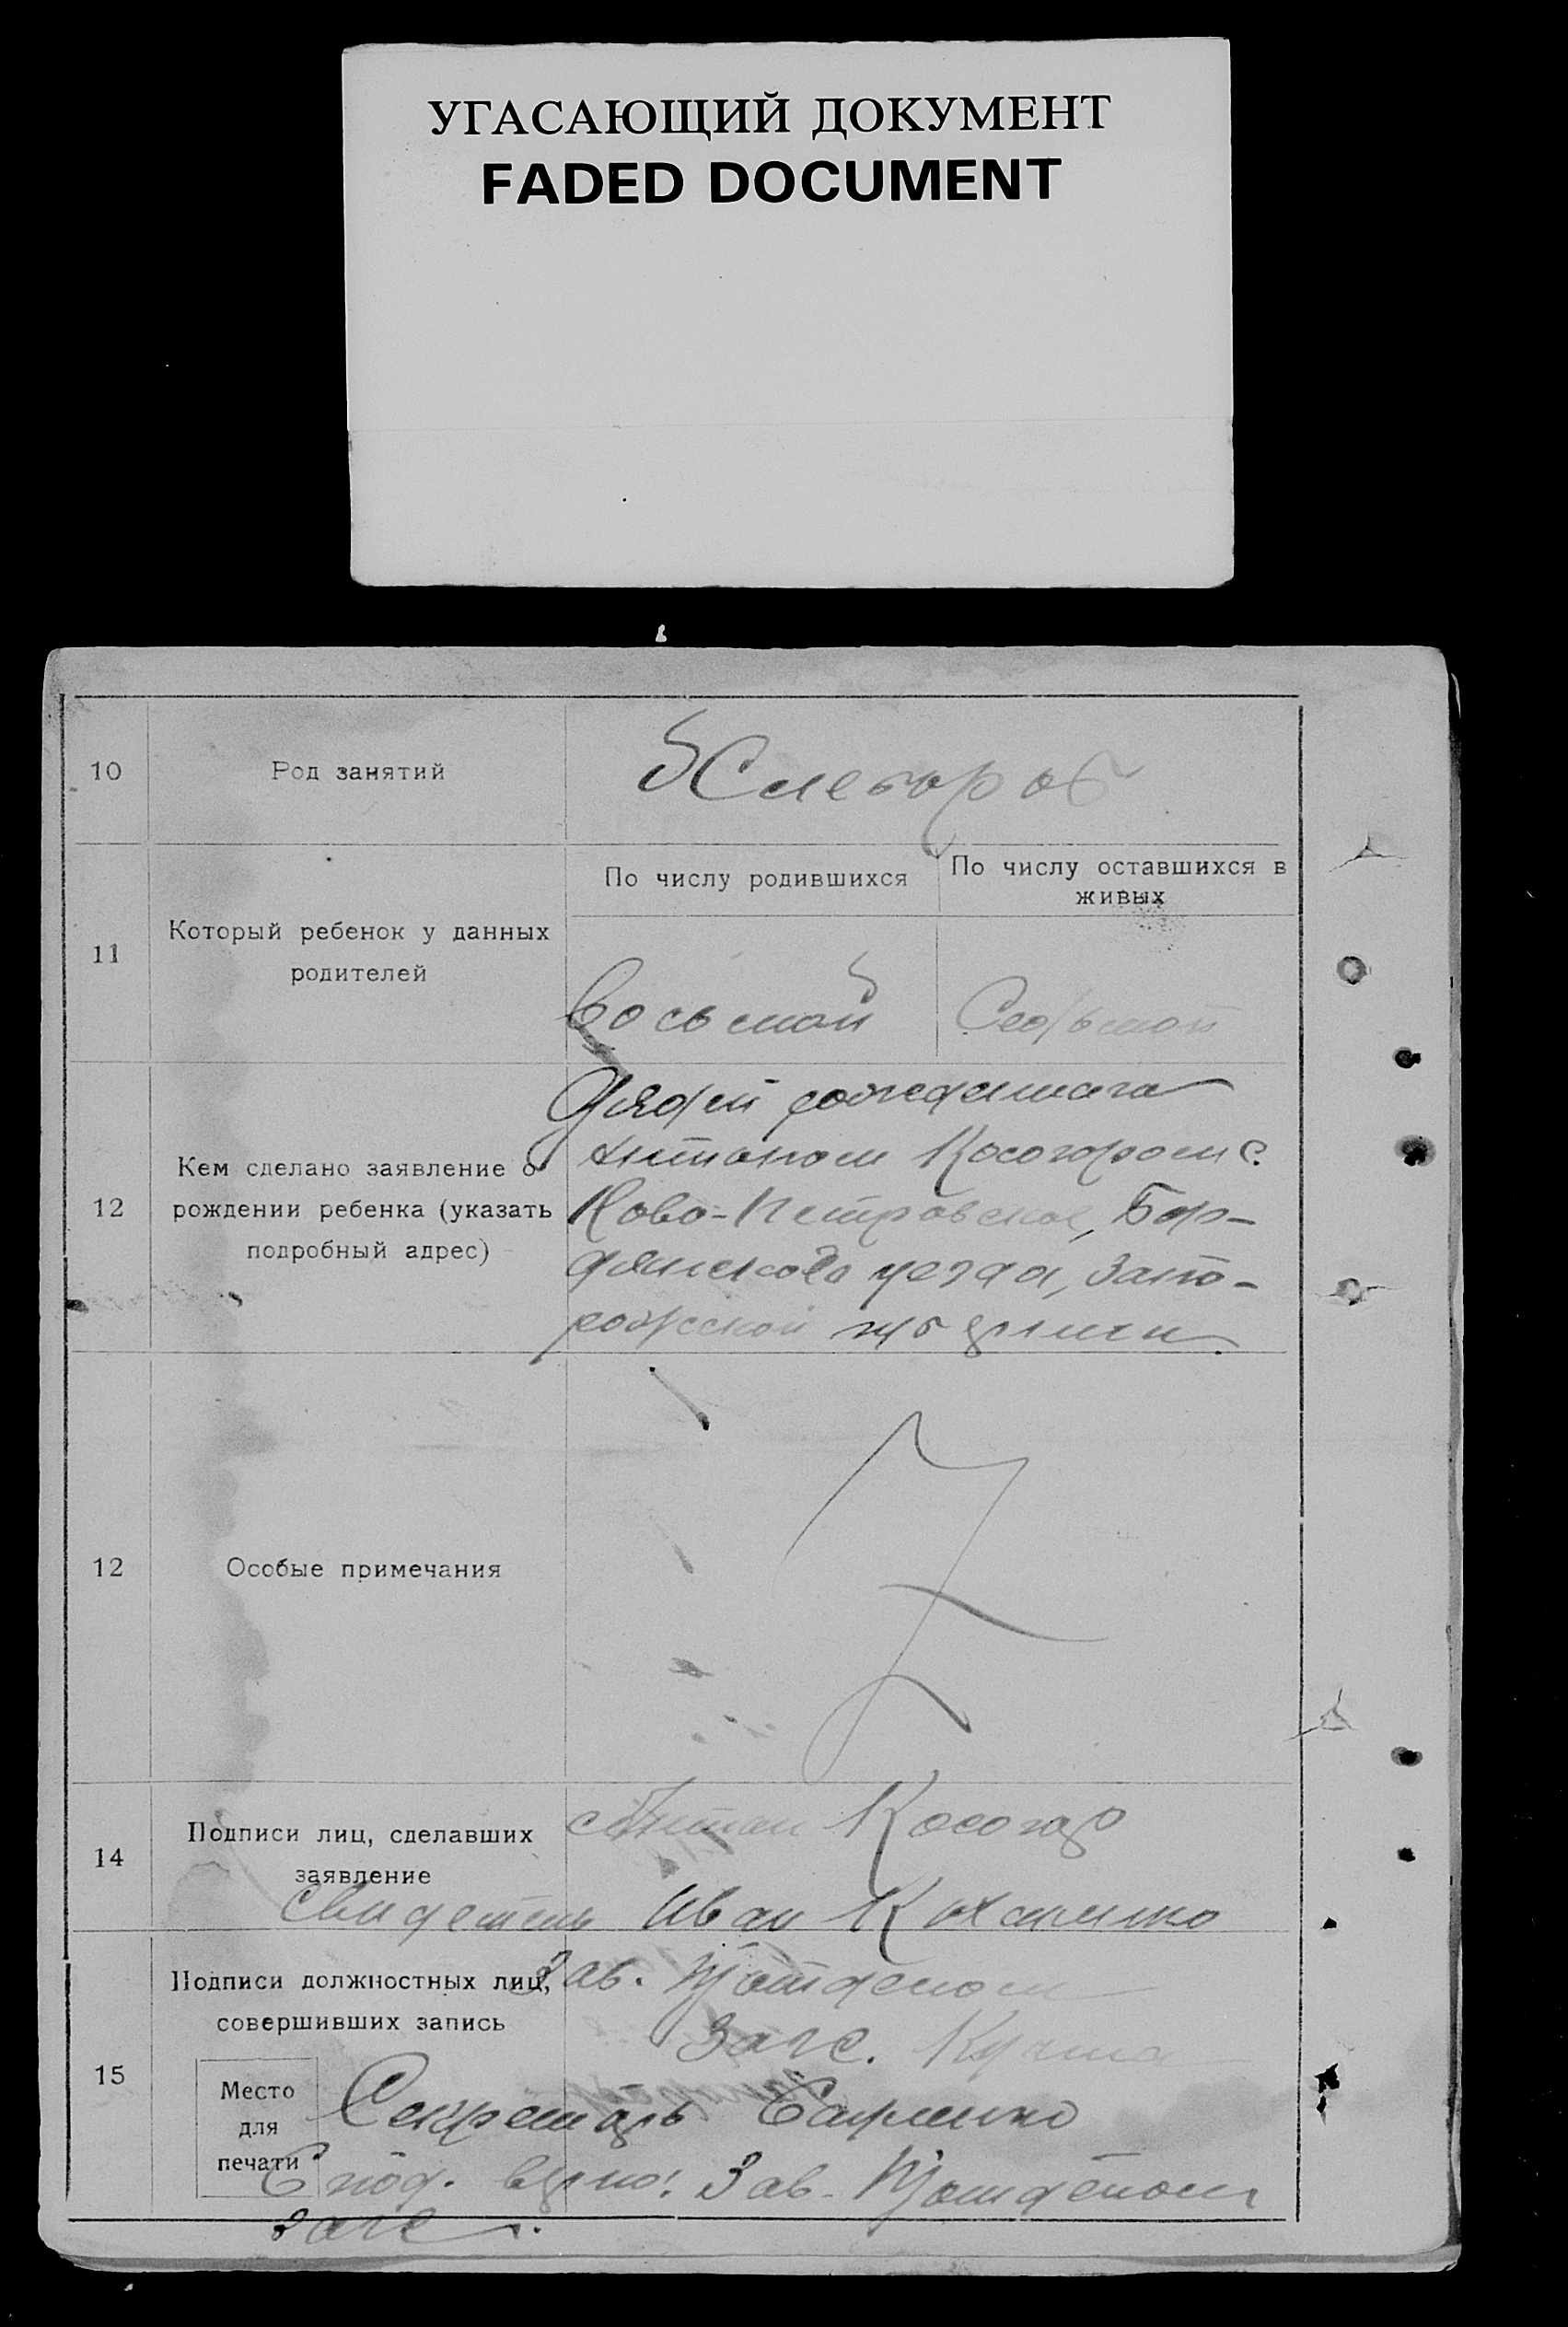 УГАСАЮЩИЙ ДОКУМЕНТ
FADED DOCUMENT
10 Род занятий Хлебороб
11 Который ребенок у данных родителей
По числу родившихся
По числу оставшихся в живых
восьмой Седьмой
12 Кем сделано заявление о рождении ребенка (указать подробный адрес)
Дядей
Антоном Косогором с.
Ново-Петровское, Бер-
дянского уезда, Запо-
рожской губернии
12 Особые примечания
14 Подписи лиц, сделавших заявление
Антон Косогор
Свидетель Иван
15 Подписи должностных лиц, совершивших запись
Зав.
Загс.
Место
для
печати
Секретарь
С под. верно: Зав.
загс